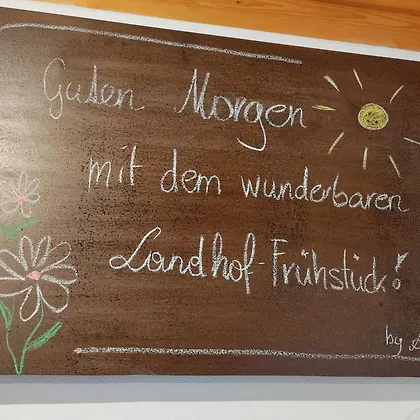 Guten Morgen
mit dem wunderbaren
Landhof-Frühstück!
by